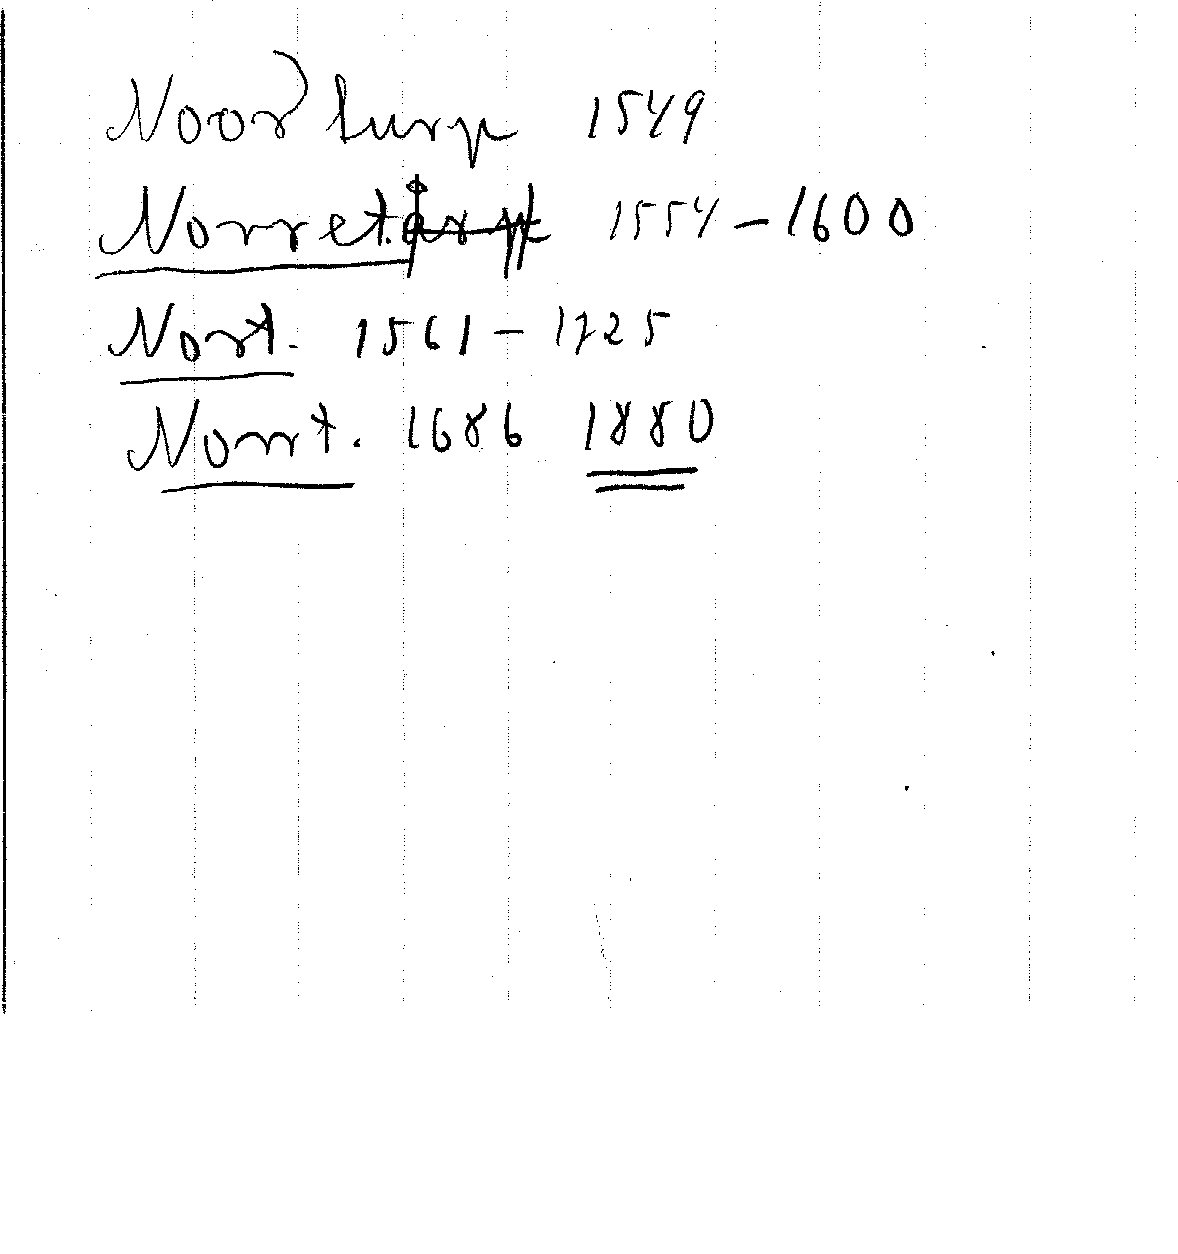 Noor turp 1549
Norret. 1554 - 1600
Nort. 1561 - 1725
Norrt. 1686 1880